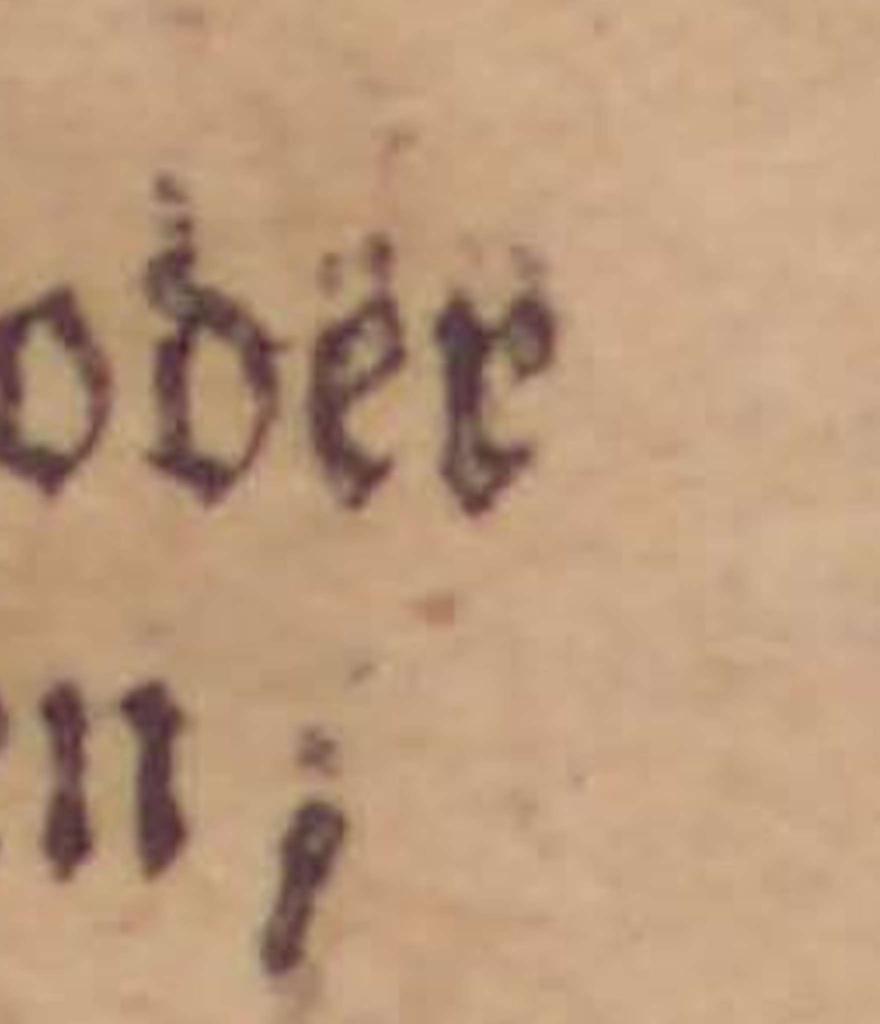 oder
n ;